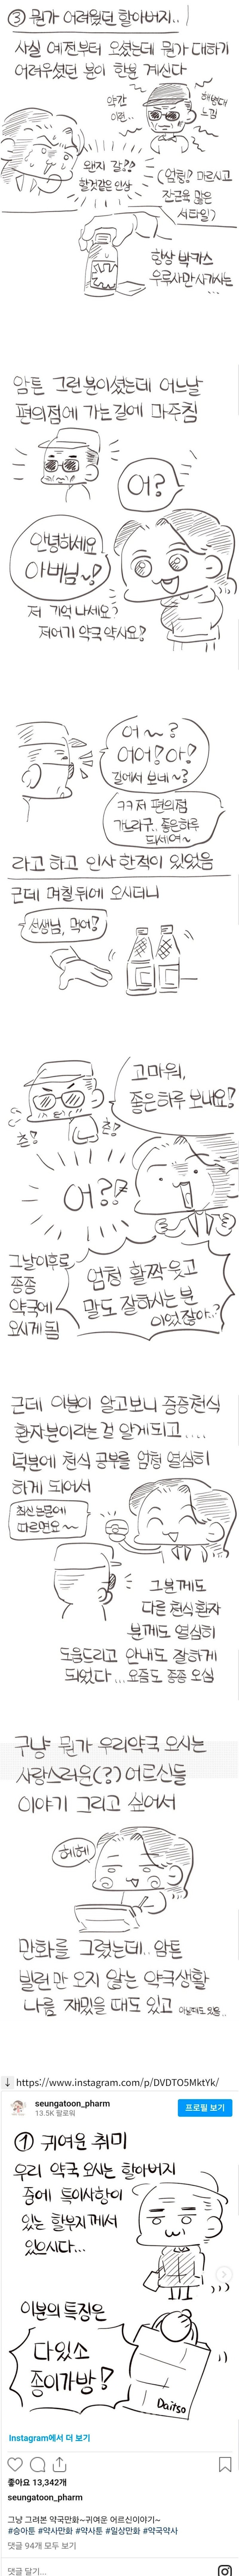 ③ 뭔가 어려웠던 할아버지..
사실 예전부터 오셨는데 뭔가 대하기
어려우셨던 분이 한분 계신다
약간
이런..
느낌
왠지 강??
할것같은 인상
(엄청! 마르시고
잔근육 많은
스타일?)
항상 박카스
우루사만 사가시는
...
암튼 그런분이셨는데 어느날
편의점에 가는길에 마주침
어?
안녕하세요
아버님~!
저 기억나세요?
저어기 약국 약사요!
어~?
어어! 아!
길에서 보네~?
ㅋㅋ저 편의점
가느라구.. 좋은하루
되세여~
라고 하고 인사 한적이 있었음
근데 며칠뒤에 오시더니
선생님, 먹어!
고마워,
좋은하루 보내요!
춥!
춥!
어??
그날이후로
종종
약국에
오시게 됨
엄청 활짝 웃고
말도 잘하시는 분
이었잖아..?
근데 이분이 알고보니 중증천식
환자분이라는 걸 알게되고....
덕분에 천식 공부를 엄청 열심히
하게 되어서
최신논문에
따르면요~
그분께도
다른 천식환자
분께도 열심히
도움드리고 안내도 잘하게
되었다... 요즘도 종종 오심
구냥 뭔가 우리약국 오시는
사랑스러운(?) 어르신들
이야기 그리고 싶어서
헤헤
만화를 그렸는데.. 암튼
빌런만 오지 않는 약국생활
나름 재밌을 때도 있고 아닐때도있음..
↓ https://www.instagram.com/p/DVDTO5MktYk/
seungatoon_pharm
13.5K 팔로워
프로필 보기
① 귀여운 취미
우리 약국 오시는 할아버지
중에 특이사항이
있는 할부지께서
있으시다...
이분의 특징은
다있소
종이가방!
Daitso
Instagram에서 더 보기
좋아요 13,342개
seungatoon_pharm
그냥 그려본 약국만화~귀여운 어르신이야기~
#승아툰 #약사만화 #약사툰 #일상만화 #약국약사
댓글 94개 모두 보기
댓글 달기...